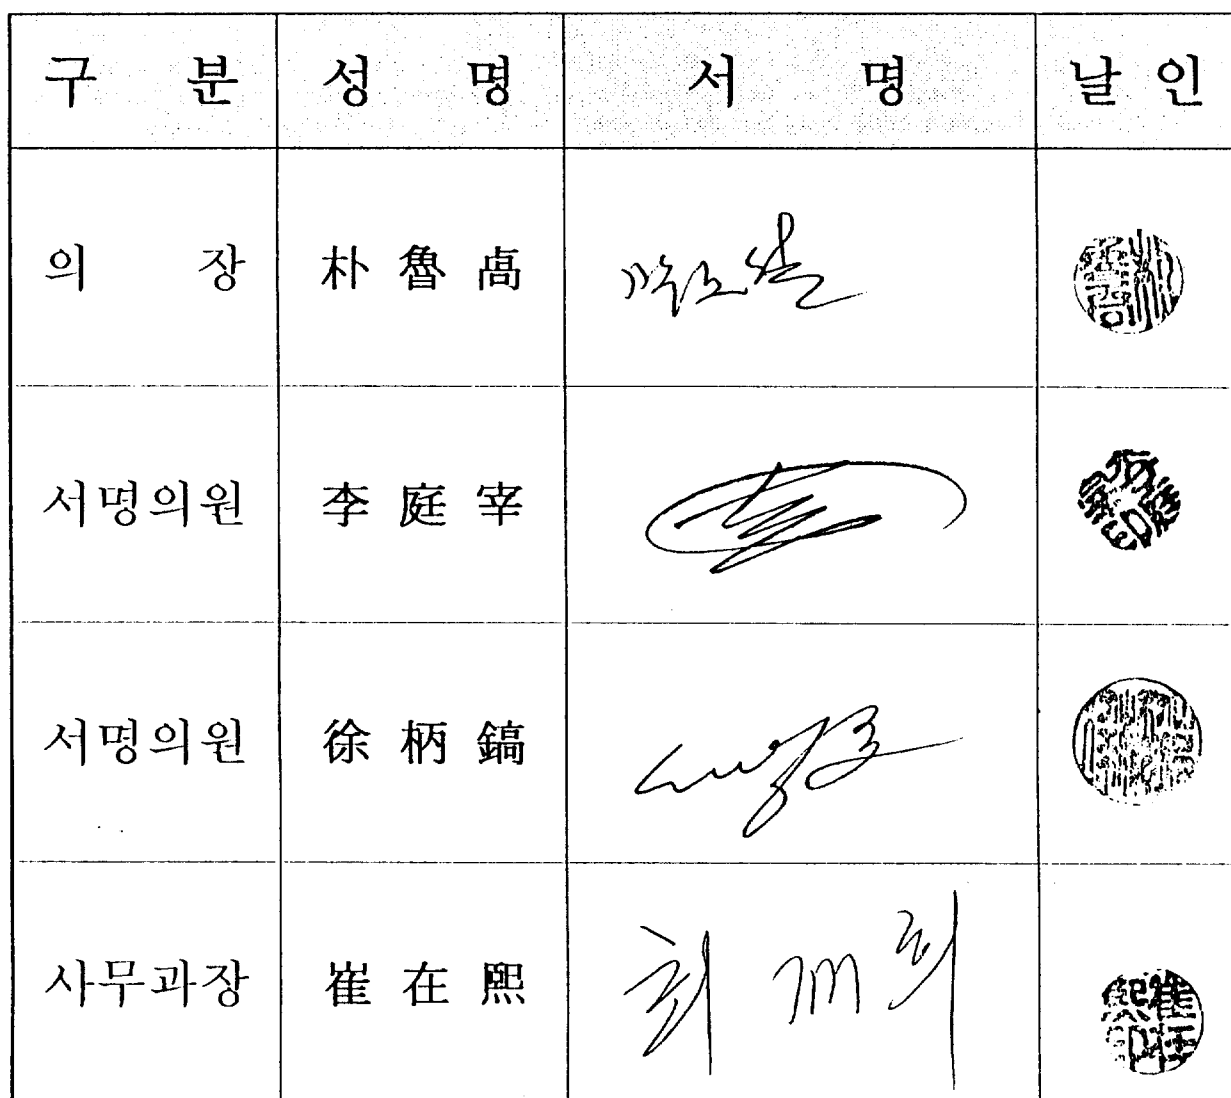 구 분 성 명 서 명 날 인
의 장 朴 魯 卨
서명의원 李 庭 宰
서명의원 徐 柄 鎬
사무과장 崔 在 熙 최 재 희